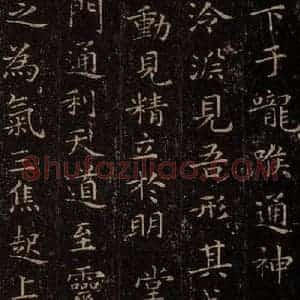 下于嚨喉通神
泠淚見吾形其
動見精立於明堂
門通利天道至靈
之為氣三焦起上
Shufaziliao.com